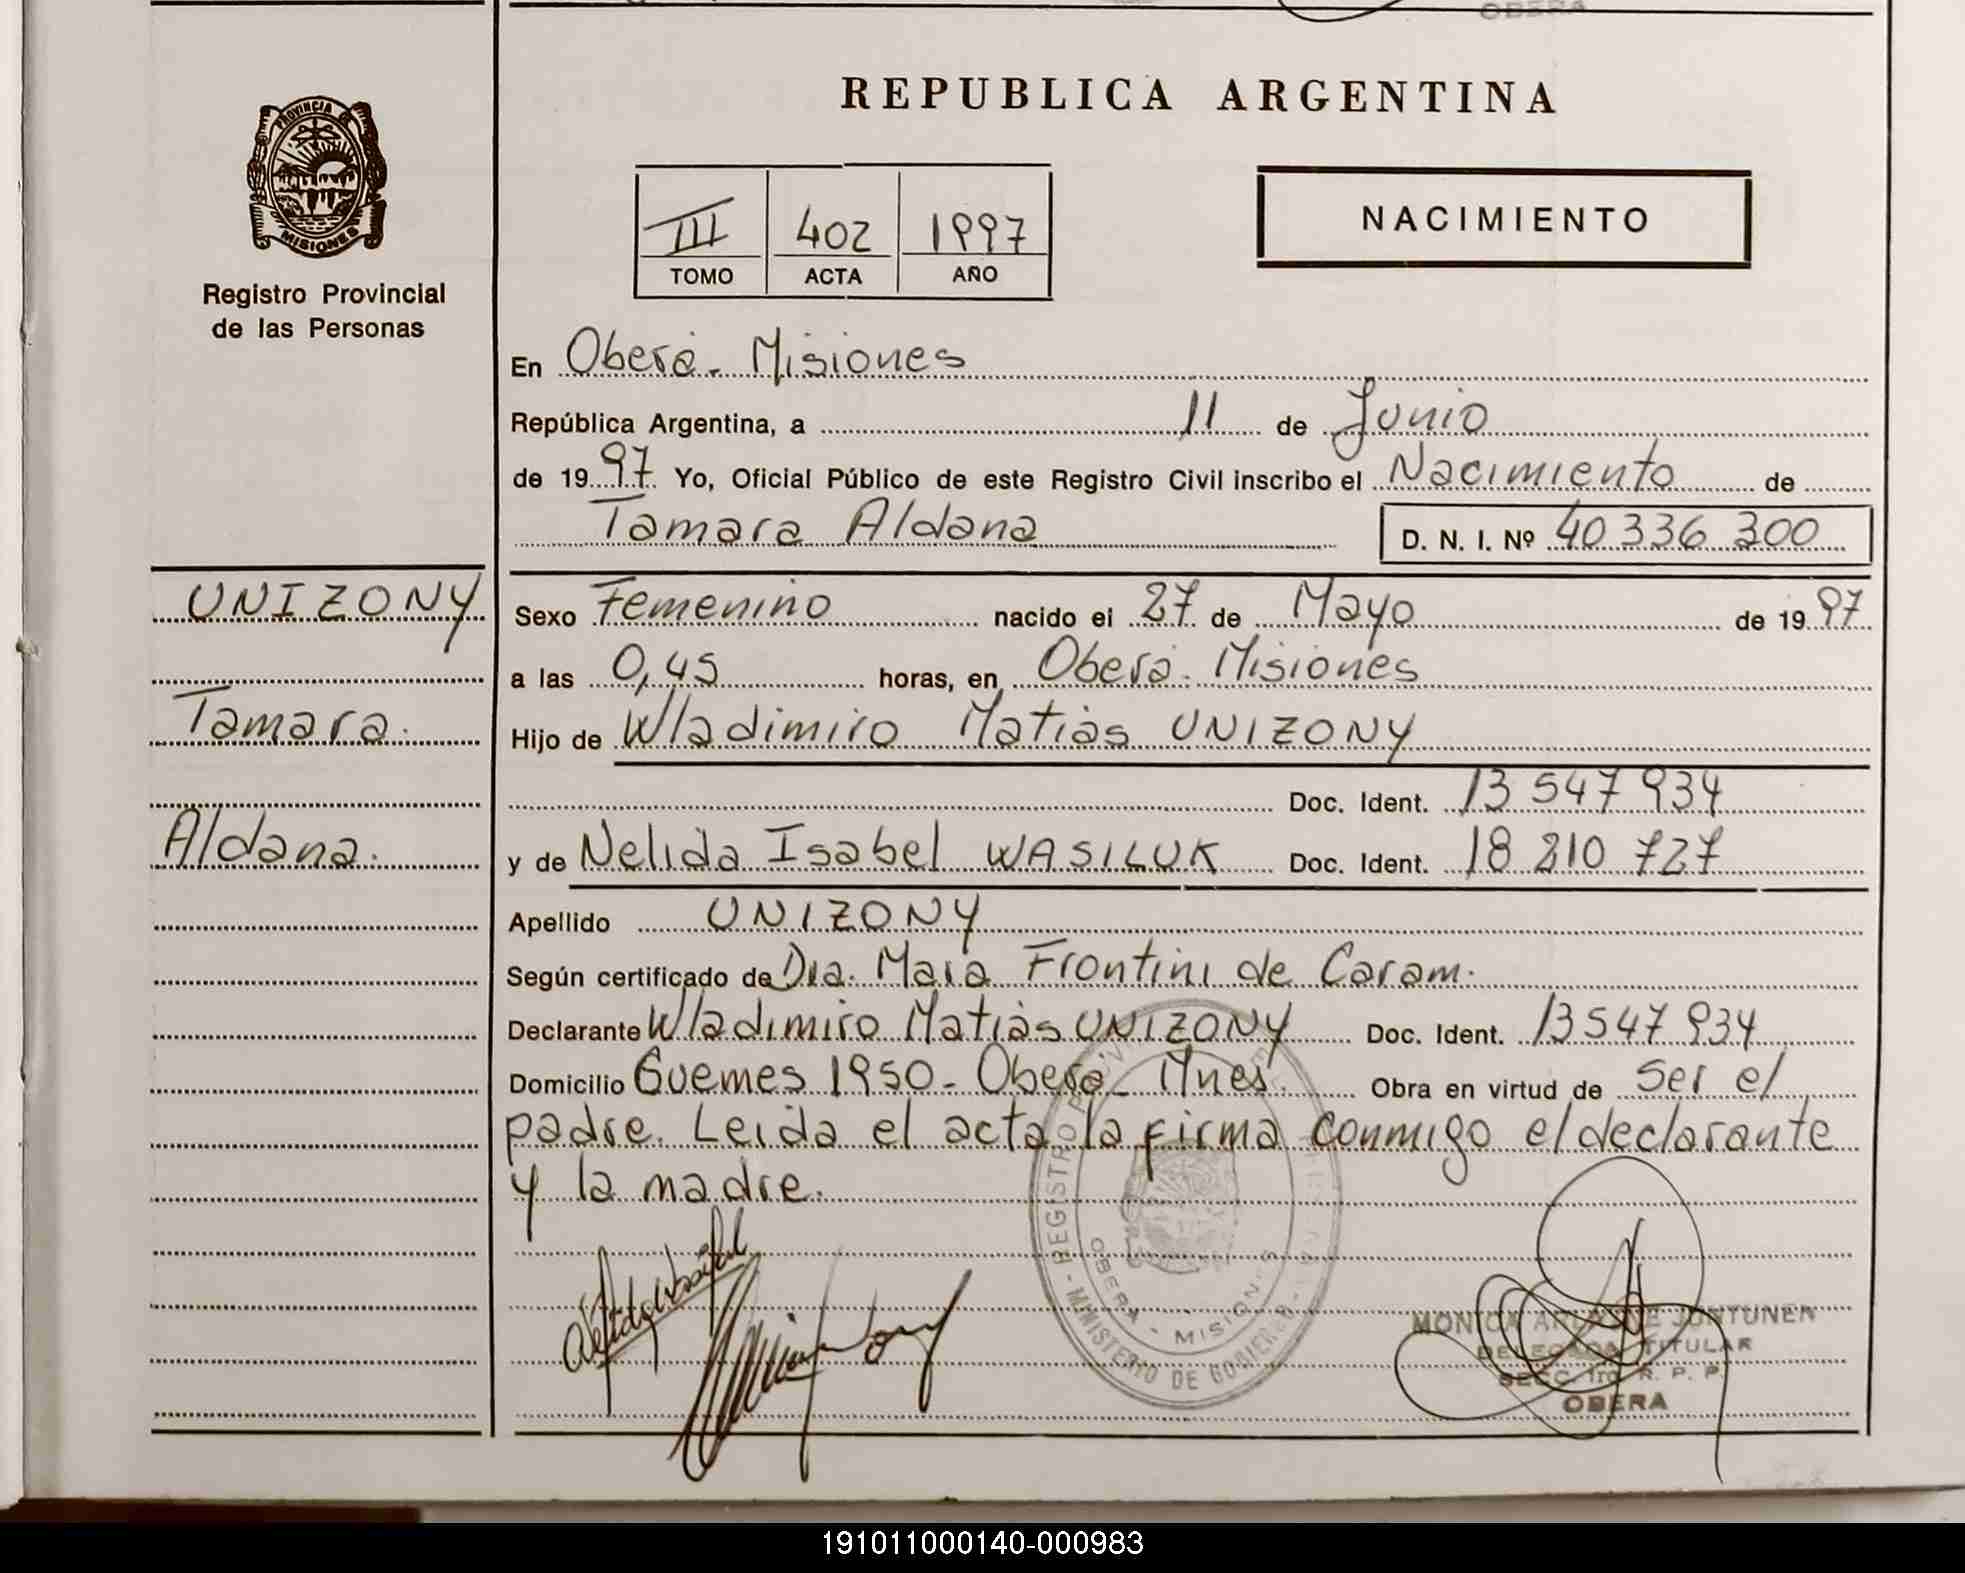 OBERA
REPUBLICA ARGENTINA
PROVINCIA DE
MISIONES
Registro Provincial
de las Personas
III 402 1997
TOMO ACTA AÑO
NACIMIENTO
En Oberá. Misiones
República Argentina, a 11 de Junio
de 1997 Yo, Oficial Público de este Registro Civil inscribo el Nacimiento de
Tamara Aldana D. N. I. Nº 40 336 300
UNIZONY
Tamara.
Aldana.
Sexo Femenino nacido el 27 de Mayo de 1997
a las 0,45 horas, en Oberá. Misiones
Hijo de Wladimiro Matias UNIZONY
Doc. Ident. 13 547 934
y de Nelida Isabel WASILUK Doc. Ident. 18 210 727
Apellido UNIZONY
Según certificado de Dra. Mara Frontini de Caram.
Declarante Wladimiro Matias UNIZONY Doc. Ident. 13547 934
Domicilio Guemes 1950. Oberá. Mnes. Obra en virtud de Ser el
padre. Leida el acta la firma conmigo el declarante
y la madre.
REGISTRO
OBERA - MISIONES
MINISTERIO DE GOBIERNO
MONICA JUNTUNEN
DELEGADA TITULAR
SECC. 1ra. R. P. P.
OBERA
191011000140-000983